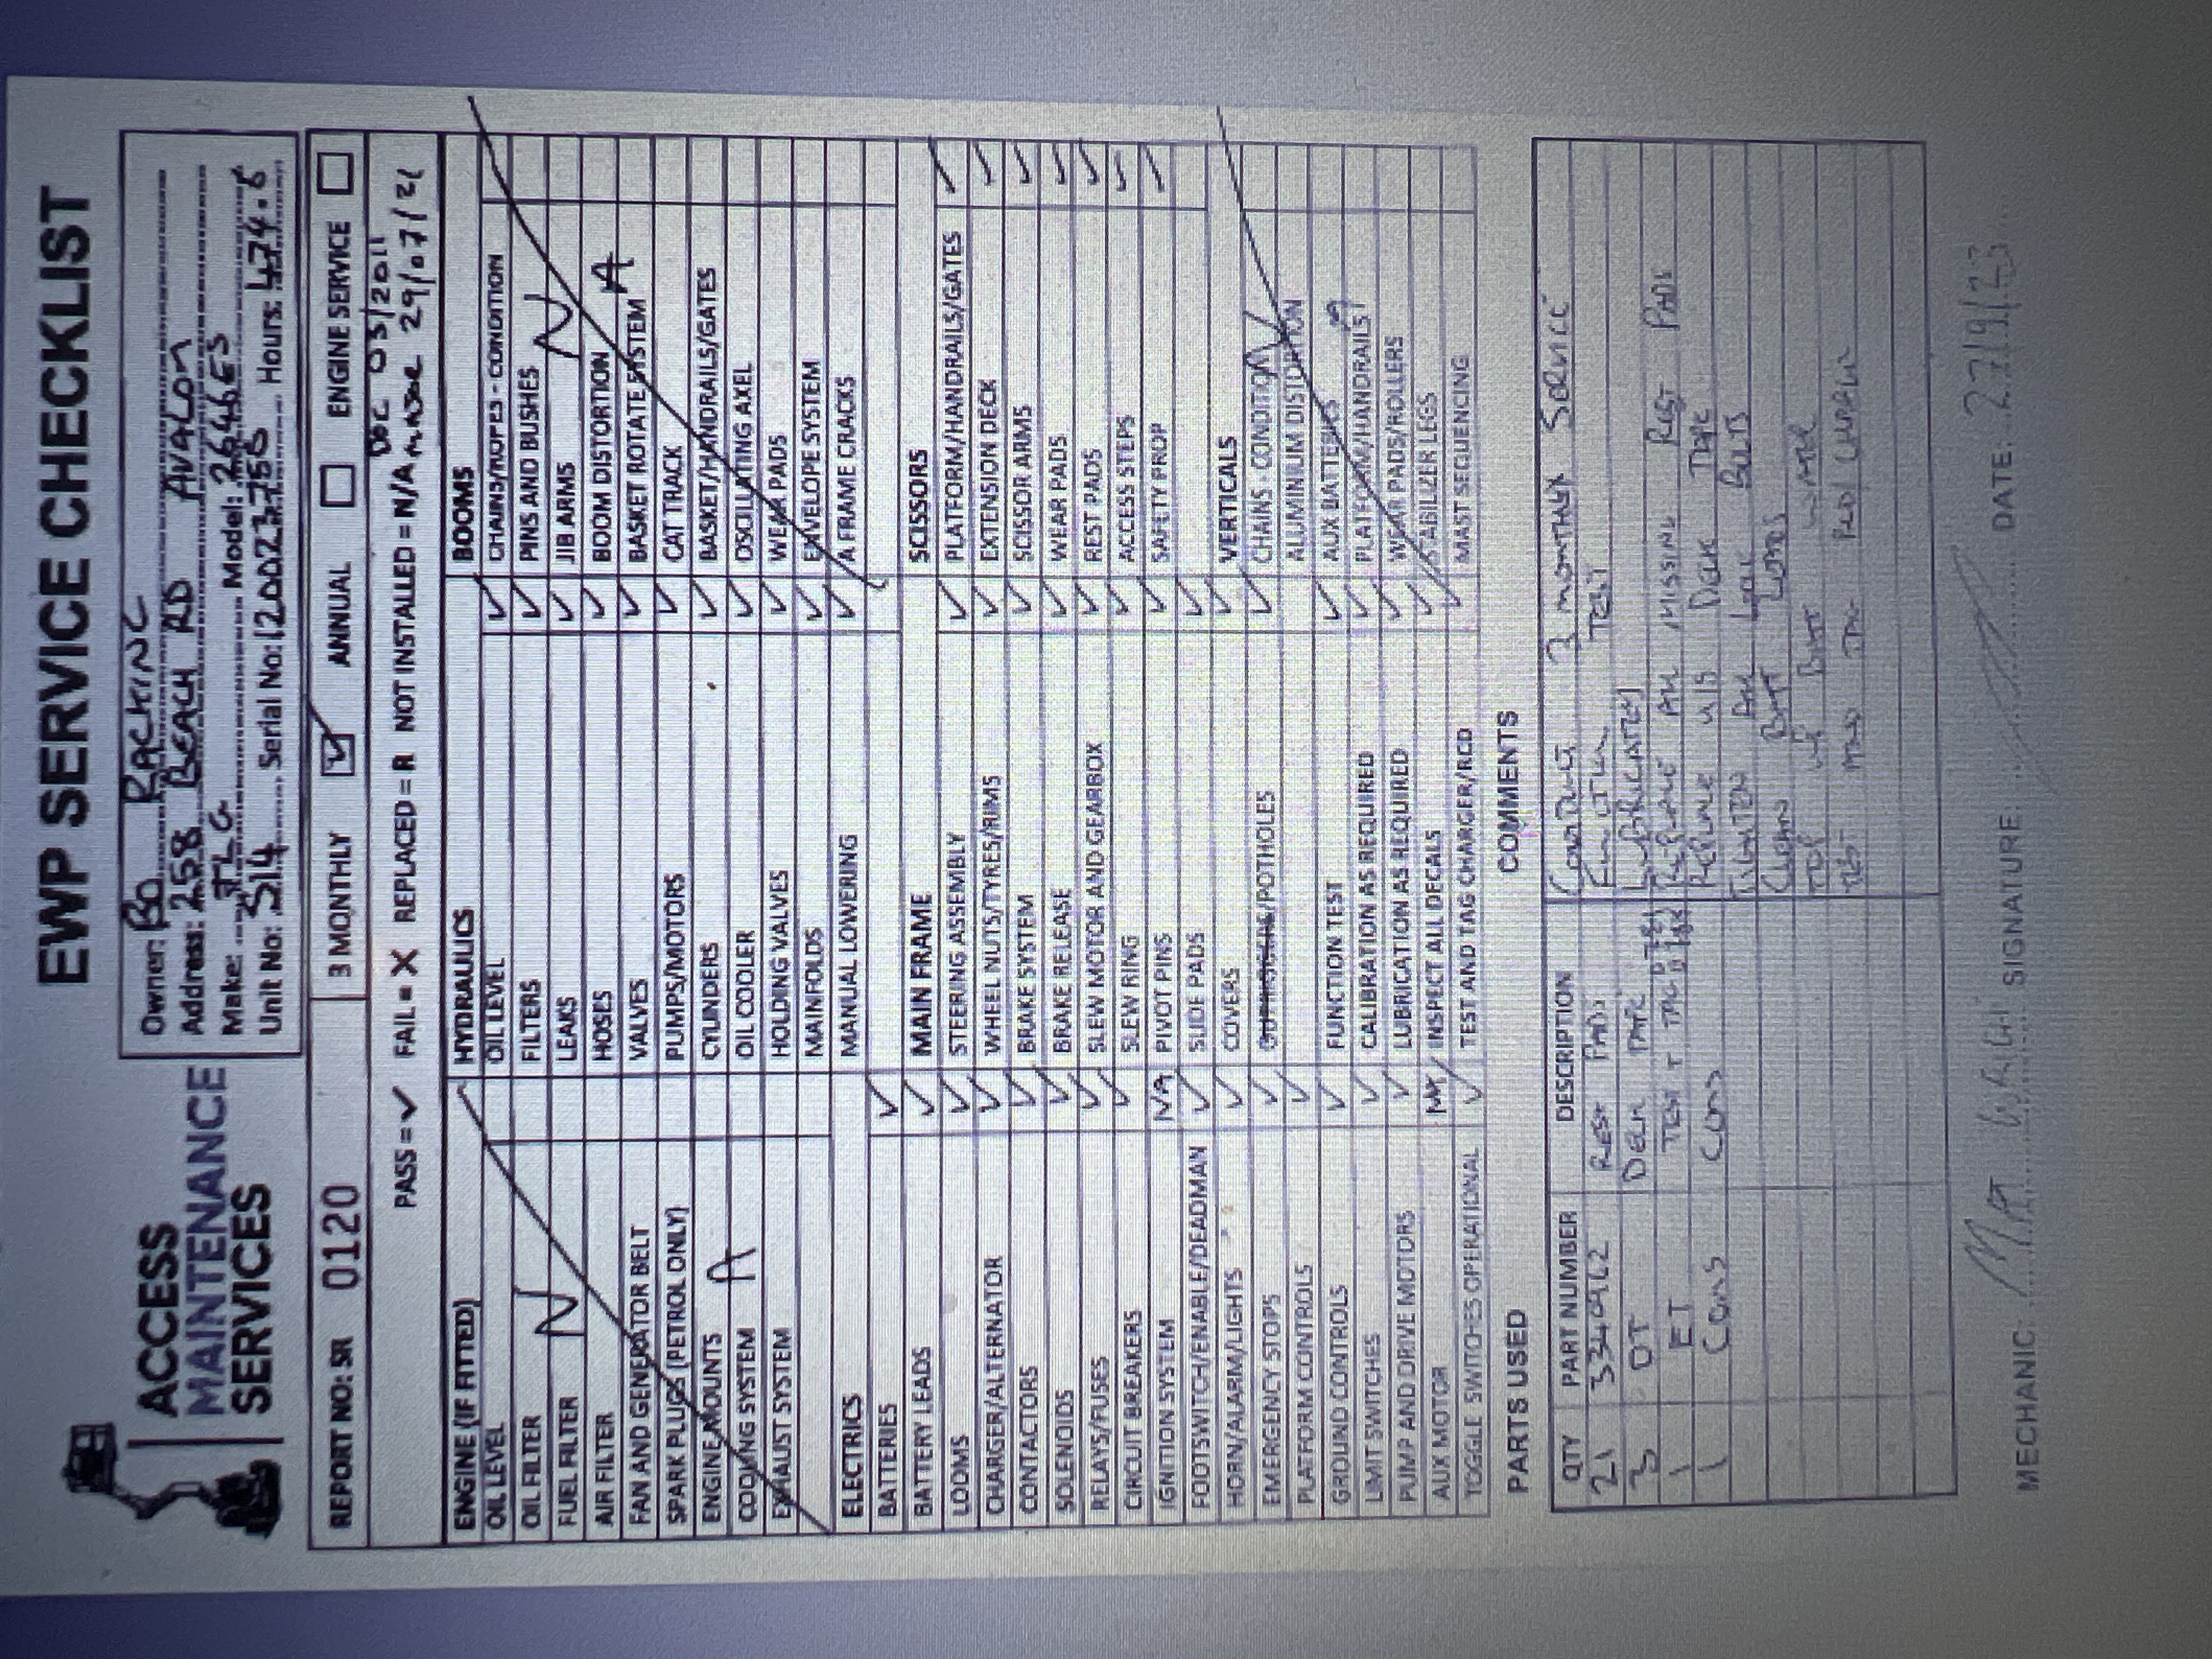 EWP SERVICE CHECKLIST
ACCESS
MAINTENANCE
SERVICES
Owner: BO RACKING
Address: 258 BEACH RD AVALON
Make: JLG Model: 2646ES
Unit No: S14 Serial No: 1200237 Hours: 474.6
REPORT NO: SR 0120 3 MONTHLY ☑ ANNUAL ☐ ENGINE SERVICE ☐
DOC 03/2011
PASS = ✓ FAIL = X REPLACED = R NOT INSTALLED = N/A 29/07/21
ENGINE (IF FITTED)
OIL LEVEL
OIL FILTER
FUEL FILTER N
AIR FILTER
FAN AND GENERATOR BELT
SPARK PLUGS (PETROL ONLY)
ENGINE MOUNTS
COOLING SYSTEM A
EXHAUST SYSTEM
ELECTRICS
BATTERIES ✓
BATTERY LEADS ✓
LOOMS ✓
CHARGER/ALTERNATOR ✓
CONTACTORS ✓
SOLENOIDS ✓
RELAYS/FUSES ✓
CIRCUIT BREAKERS ✓
IGNITION SYSTEM NA
FOOTSWITCH/ENABLE/DEADMAN ✓
HORN/ALARM/LIGHTS ✓
EMERGENCY STOPS ✓
PLATFORM CONTROLS ✓
GROUND CONTROLS ✓
LIMIT SWITCHES ✓
PUMP AND DRIVE MOTORS ✓
AUX MOTOR NA
TOGGLE SWITCHES OPERATIONAL ✓
HYDRAULICS
OIL LEVEL ✓
FILTERS ✓
LEAKS ✓
HOSES ✓
VALVES ✓
PUMPS/MOTORS ✓
CYLINDERS ✓
OIL COOLER ✓
HOLDING VALVES ✓
MAINFOLDS ✓
MANUAL LOWERING ✓
MAIN FRAME
STEERING ASSEMBLY ✓
WHEEL NUTS/TYRES/RIMS ✓
BRAKE SYSTEM ✓
BRAKE RELEASE ✓
SLEW MOTOR AND GEARBOX ✓
SLEW RING ✓
PIVOT PINS ✓
SLIDE PADS ✓
COVERS ✓
/POTHOLES ✓
FUNCTION TEST ✓
CALIBRATION AS REQUIRED ✓
LUBRICATION AS REQUIRED ✓
INSPECT ALL DECALS ✓
TEST AND TAG CHARGER/RCD ✓
BOOMS
CHAINS/ROPES - CONDITION
PINS AND BUSHES
JIB ARMS N
BOOM DISTORTION
BASKET ROTATE SYSTEM A
CAT TRACK
BASKET/HANDRAILS/GATES
OSCILLATING AXEL
WEAR PADS
ENVELOPE SYSTEM
A FRAME CRACKS
SCISSORS
PLATFORM/HANDRAILS/GATES ✓
EXTENSION DECK ✓
SCISSOR ARMS ✓
WEAR PADS ✓
REST PADS ✓
ACCESS STEPS ✓
SAFETY PROP ✓
VERTICALS
CHAINS - CONDITION
ALUMINIUM DISTORTION
AUX BATTERIES
PLATFORM/HANDRAILS
WEAR PADS/ROLLERS
STABILIZER LEGS
MAST SEQUENCING
PARTS USED
QTY PART NUMBER DESCRIPTION
21 3340962 REST PADS
3 DT DECK TAPE
1 ET TEST + TAG
1 CONS CONS
COMMENTS
3 MONTHLY SERVICE
FUNCTION TEST
LUBRICATED
REPLACE ALL MISSING REST PADS
REPLACE DECK TAPE
TIGHTEN ALL LOCK BOLTS
CLEAN BATT
TOP UP BATT WATER
TEST AND TAG
MECHANIC: SIGNATURE: DATE: 27/9/23